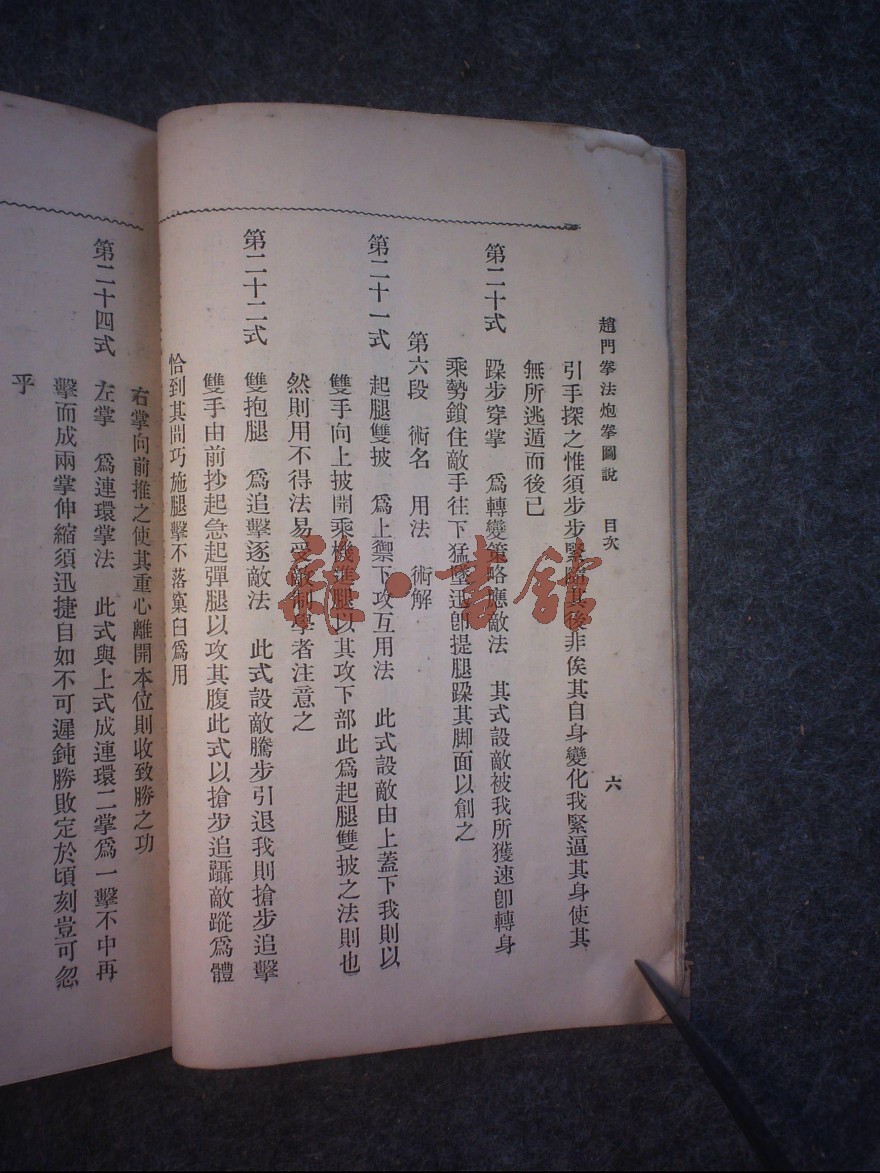 趙門拳法炮拳圖說　目次　六
引手探之惟須步步緊臨其後非俟其自身變化我緊逼其身使其
無所逃遁而後已
第二十式　跺步穿掌　爲轉變策略應敵法　其式設敵被我所獲速卽轉身
乘勢鎖住敵手往下猛墜迅卽提腿跺其脚面以創之
第六段　術名　用法　術解
第二十一式　起腿雙披　爲上禦下攻互用法　此式設敵由上蓋下我則以
雙手向上披開乘機進腿以其攻下部此爲起腿雙披之法則也
然則用不得法易受敵制學者注意之
第二十二式　雙抱腿　爲追擊逐敵法　此式設敵騰步引退我則搶步追擊
雙手由前抄起急起彈腿以攻其腹此式以搶步追躡敵蹤爲體
恰到其間巧施腿擊不落窠臼爲用
右掌向前推之使其重心離開本位則收致勝之功
第二十四式　左掌　爲連環掌法　此式與上式成連環二掌爲一擊不中再
擊而成兩掌伸縮須迅捷自如不可遲鈍勝敗定於頃刻豈可忽
乎
雜·書館